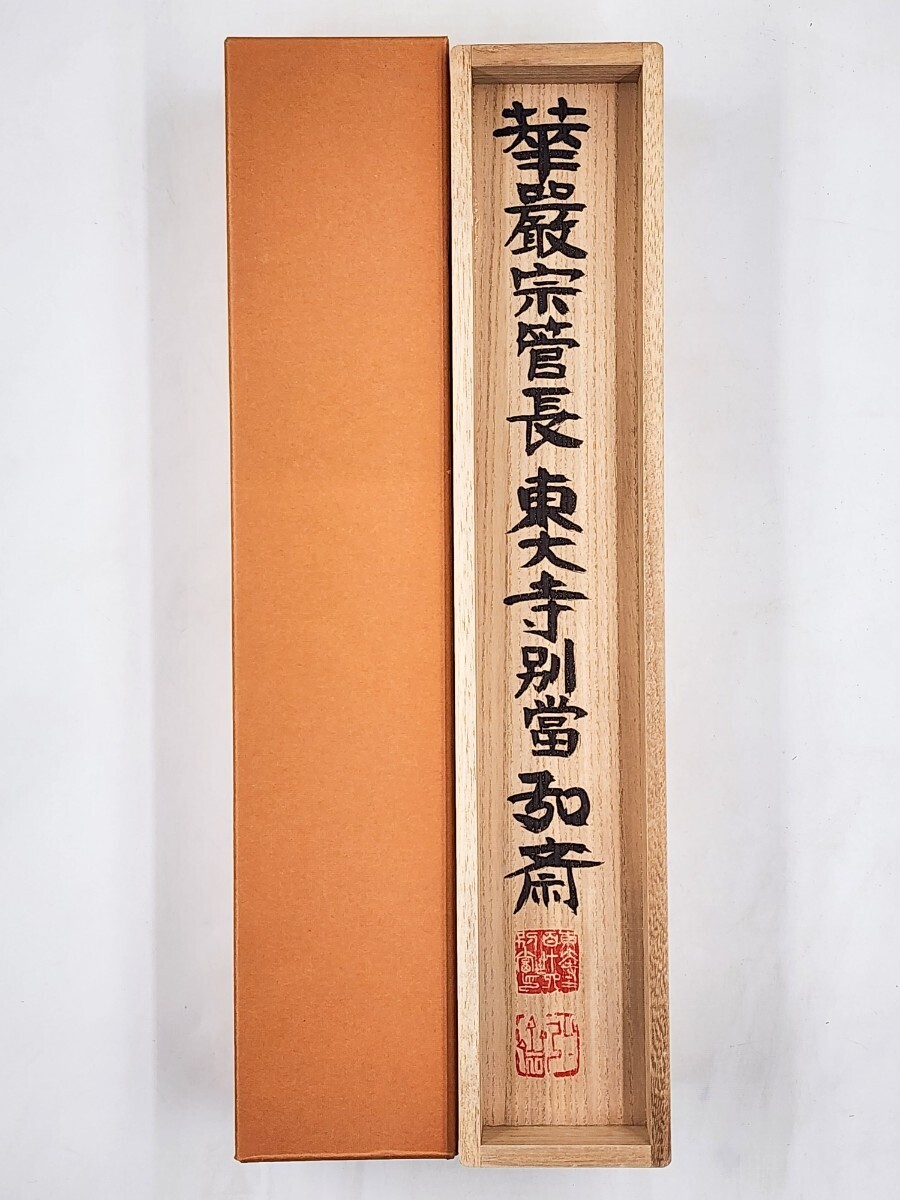 華嚴宗管長 東大寺別當 弘斎